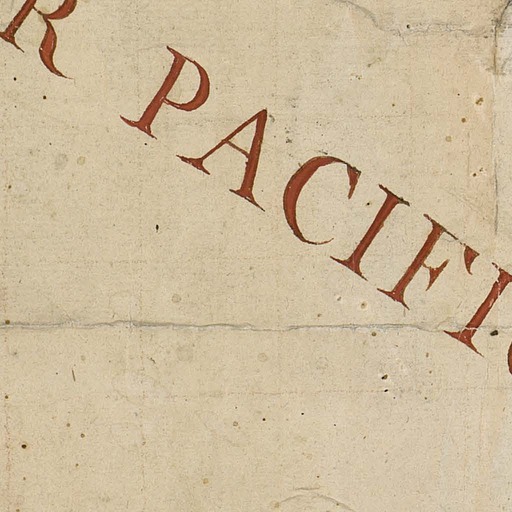 R PACIFIC